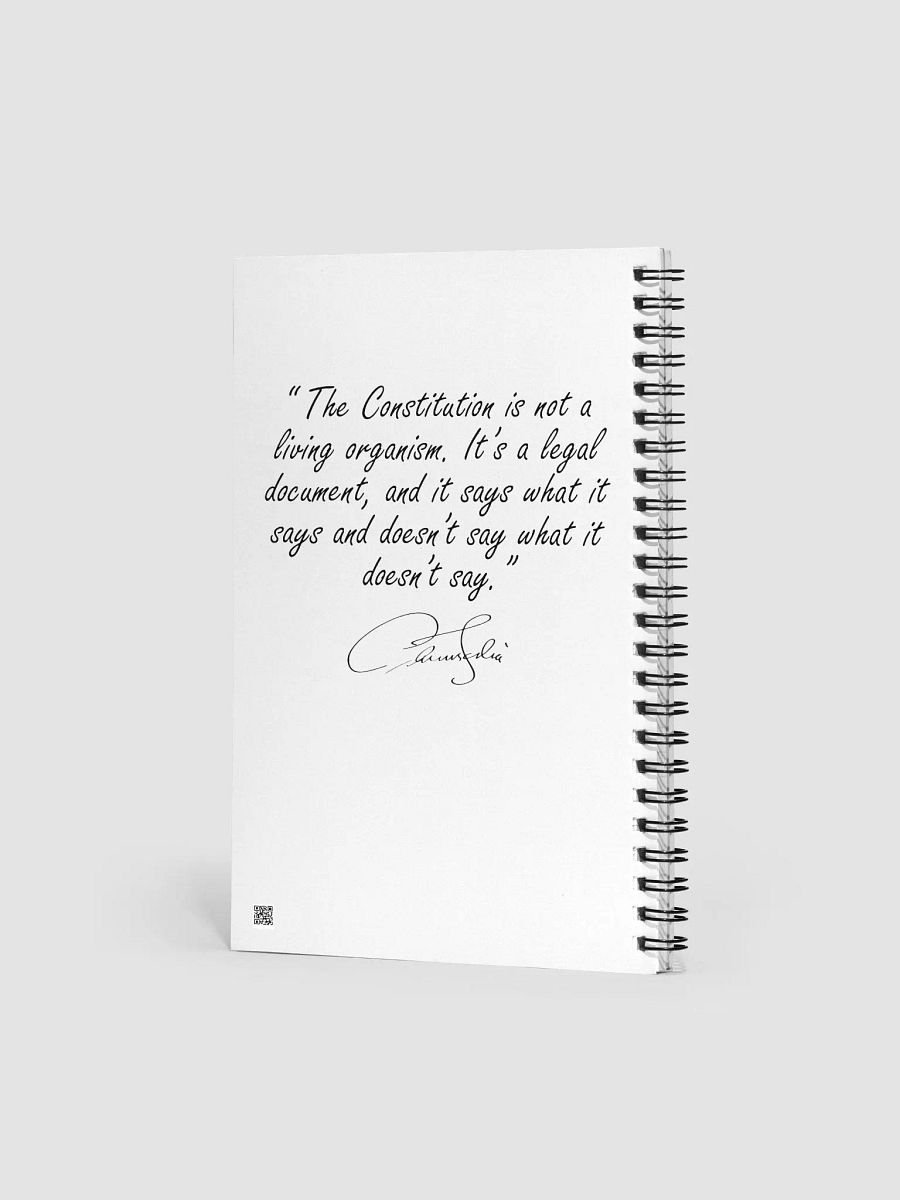 “The Constitution is not a
living organism. It's a legal
document, and it says what it
says and doesn't say what it
doesn't say.”